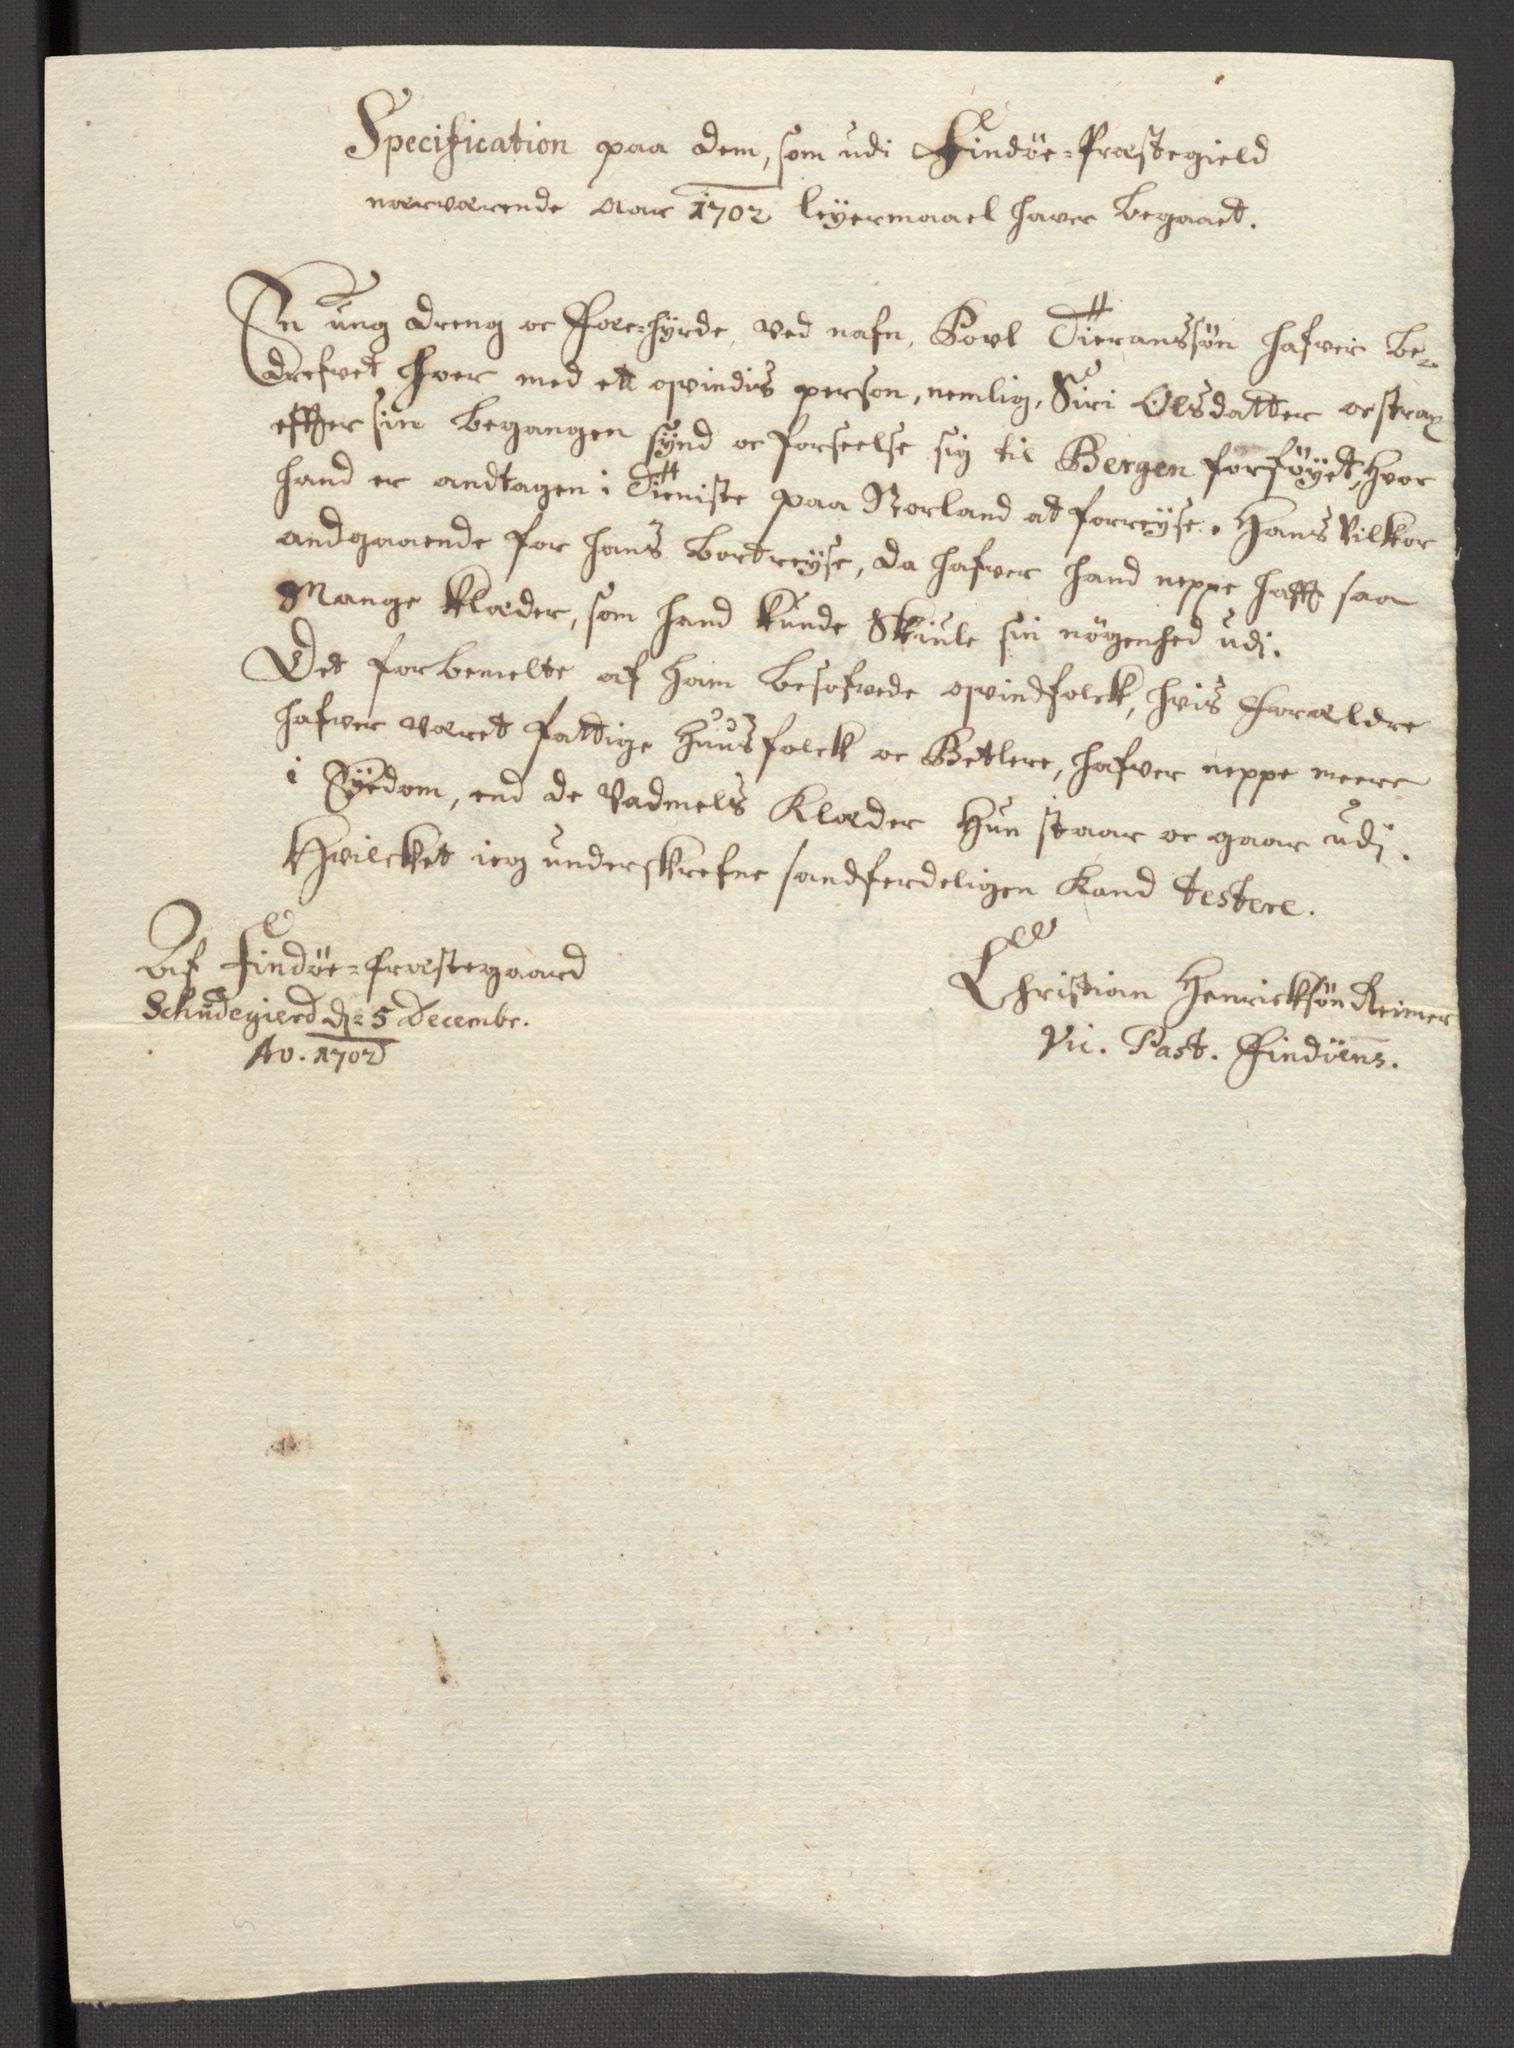 Specification paa dem, som udi Findøe-Præstegield
nærværende Aar 1702 leyermaael haver begaaet.
En ung dreng oc Foer-hyrde, ved nafn, Povl Tieranssøn hafver be-
drefvet hoer med ett qvindis person, nemlig, Siri Olsdatter oc strax
effter sin begangen synd oc forseelse sig til Bergen forføyet, hvor
hand er andtagen i Tieniste paa Norland at forreyse. Hans Vilkor
andgaaende for hans bortreyse, da hafver hand neppe hafft saa
Mange Klæder, som hand kunde Skiule sin nøgenhed udi.
Det forbemelte af ham besofvede qvindfolck, hvis Forældre
hafver været fattige Huusfolck oc Betlere, hafver neppe meere
i Eyedom, end de Vadmels Klæder Hun staar oc gaar udj.
Hvilcket ieg underskrefne sandferdeligen Kand testere.
Af Findøe-Præstegaard
d: 5 Decembr.
Ao. 1702
Christian Henrickssøn Reimer
Vic. Past. Findöens.